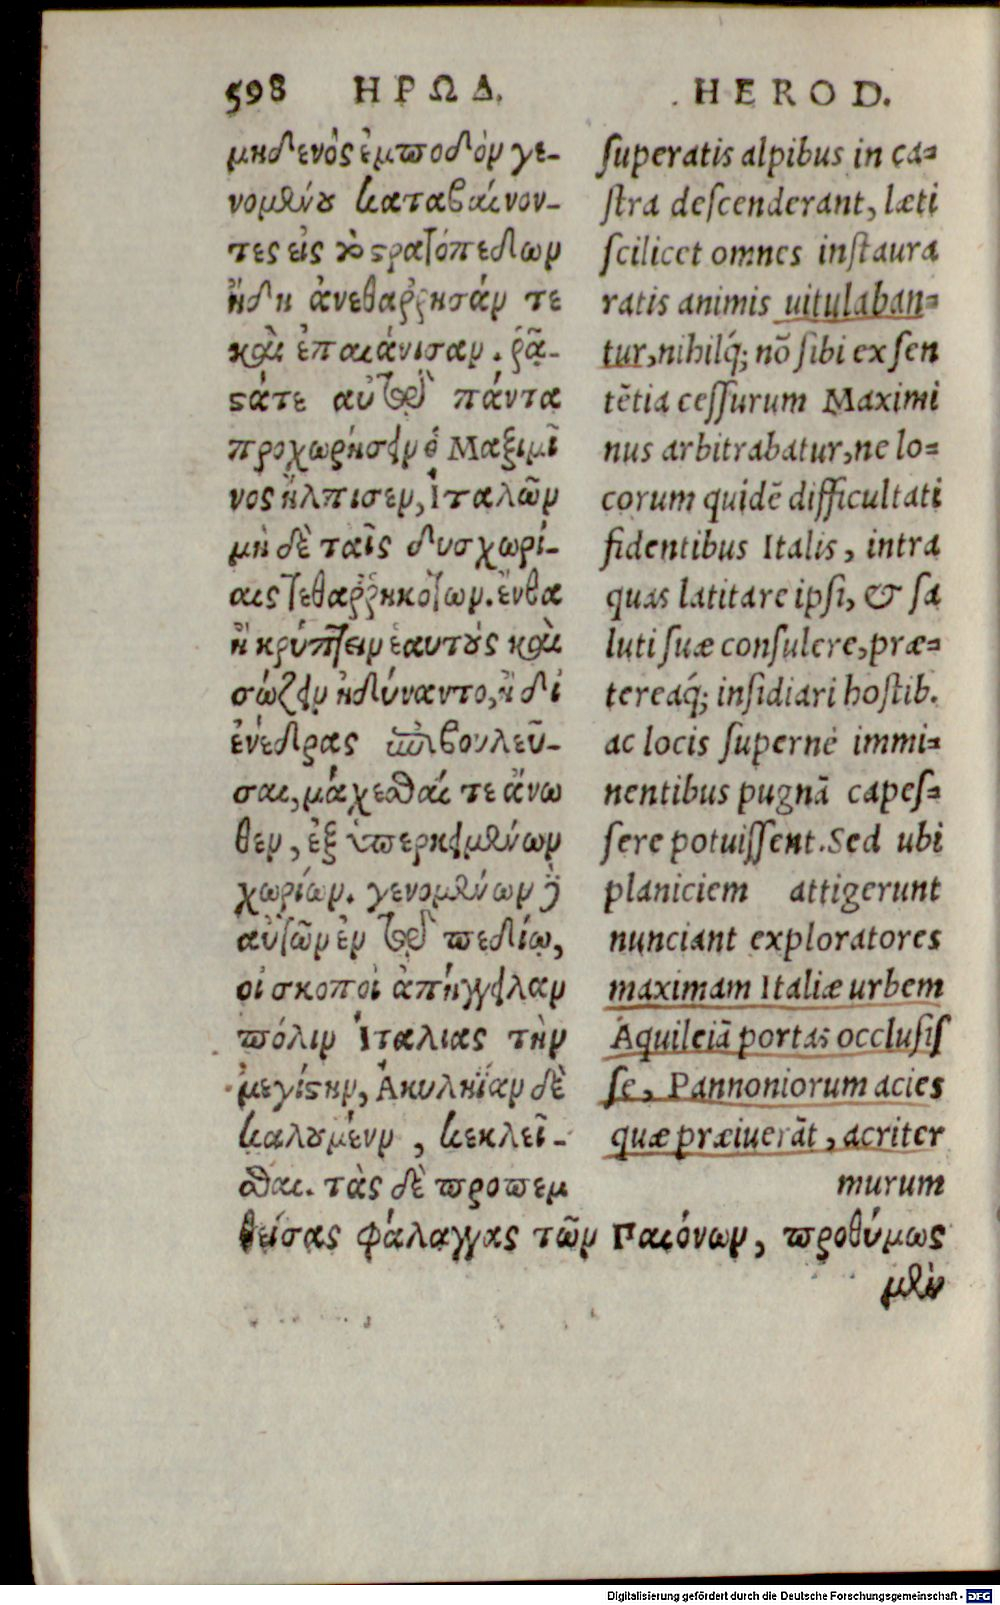 598 ΗΡΩΔ.
μηδενὸς ἐμποδὼν γε-
νομένου καταβαίνον-
τες εἰς τὸ στρατόπεδον
ἤδη ἀνεθάρρησάν τε
καὶ ἐπαιάνισαν. ῥᾷ-
στά τε αὐτῷ πάντα
προχωρήσειν ὁ Μαξιμῖ
νος ἤλπισεν, Ἰταλῶν
μὴ δὲ ταῖς δυσχωρί-
αις τεθαρρηκότων. ἔνθα
ἢ κρύπτειν ἑαυτοὺς καὶ
σώζειν ἠδύναντο, ἢ δι
ἐνέδρας ἐπιβουλεῦ-
σαι, μάχεσθαί τε ἄνω
θεν, ἐξ ὑπερκειμένων
χωρίων. γενομένων δὲ
αὐτῶν ἐν τῷ πεδίῳ,
οἱ σκοποὶ ἀπήγγειλαν
πόλιν Ἰταλίας τὴν
μεγίστην, Ἀκυληΐαν δὲ
καλουμένην, κεκλεῖ-
σθαι. τὰς δὲ προπεμ
φθείσας φάλαγγας τῶν Παιόνων, προθύμως
μὲν
HEROD.
superatis alpibus in ca-
stra descenderant, læti
scilicet omnes instaura
ratis animis uitulaban-
tur, nihilq́; nõ sibi ex sen
tẽtia cessurum Maximi
nus arbitrabatur, ne lo-
corum quidẽ difficultati
fidentibus Italis, intra
quas latitare ipsi, & sa
luti suæ consulere, præ-
tereaq́; insidiari hostib.
ac locis supernè immi-
nentibus pugnã capes-
sere potuissent. Sed ubi
planiciem attigerunt
nunciant exploratores
maximam Italiæ urbem
Aquileiã portas occlusis
se, Pannoniorum acies
quæ præiuerãt, acriter
murum
Digitalisierung gefördert durch die Deutsche Forschungsgemeinschaft - DFG